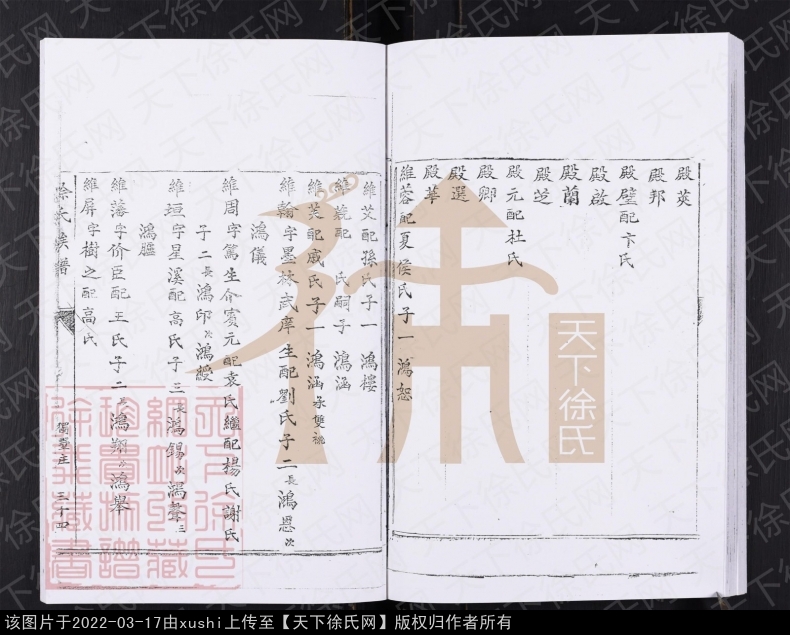 殿英
殿邦
殿璧配卞氏
殿啟
殿蘭
殿芝
殿元配杜氏
殿卿
殿選
殿華
維蓉配夏侯氏子一鴻恕
維艾配孫氏子一鴻樓
配氏嗣子鴻涵
配戚氏子一鴻涵承雙祧
維翰字墨林武庠生配劉氏子二長鴻恩次
鴻儀
維周字篤生介賓元配袁氏繼配楊氏謝氏
子二長鴻印次鴻綬
維垣字星溪配高氏子三長鴻錫次鴻聲三
鴻臚
維藩字价臣配王氏子二長鴻翔次鴻舉
維屏字樹之配高氏
徐氏族譜
三十四
天下徐氏
天下徐氏网
该图片于2022-03-17由xushi上传至【天下徐氏网】版权归作者所有